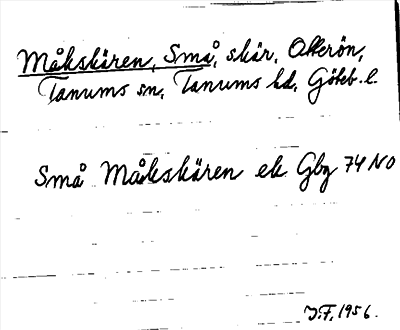 Måkskären, Små, skär, Otterön,
Tanums sn, Tanums hd, Göteb. l.
Små Måkskären ek Gbg 74 NO
J.F. 1956.